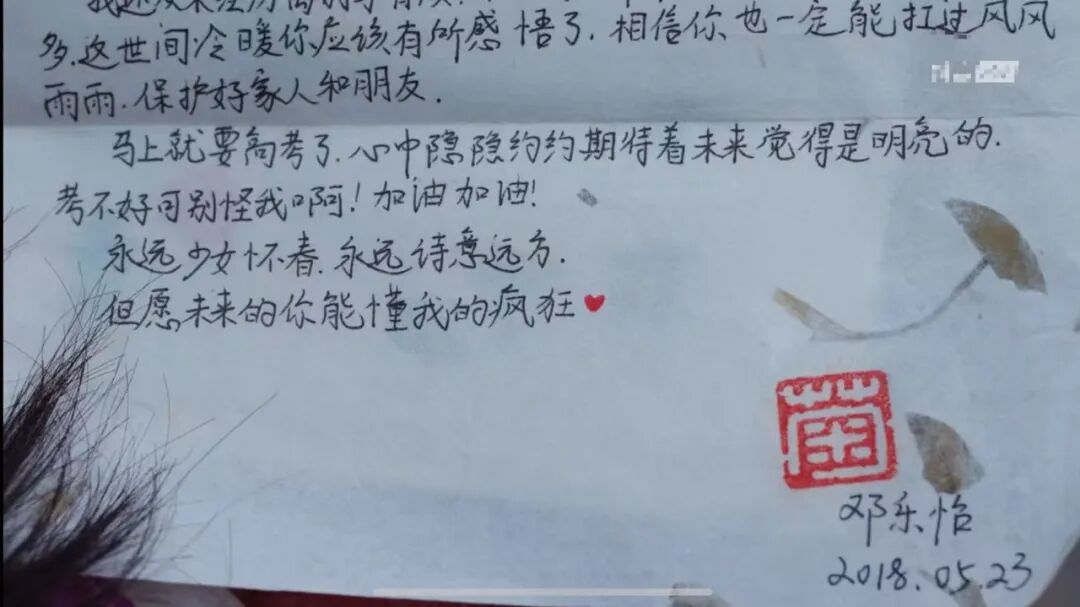 多.这世间冷暖你应该有所感悟了.相信你也一定能扛过风风
雨雨.保护好家人和朋友.
马上就要高考了.心中隐隐约约期待着未来觉得是明亮的.
考不好可别怪我啊!加油加油!
永远少女怀春.永远诗意远方.
但愿未来的你能懂我的疯狂❤
邓乐怡
2018.05.23